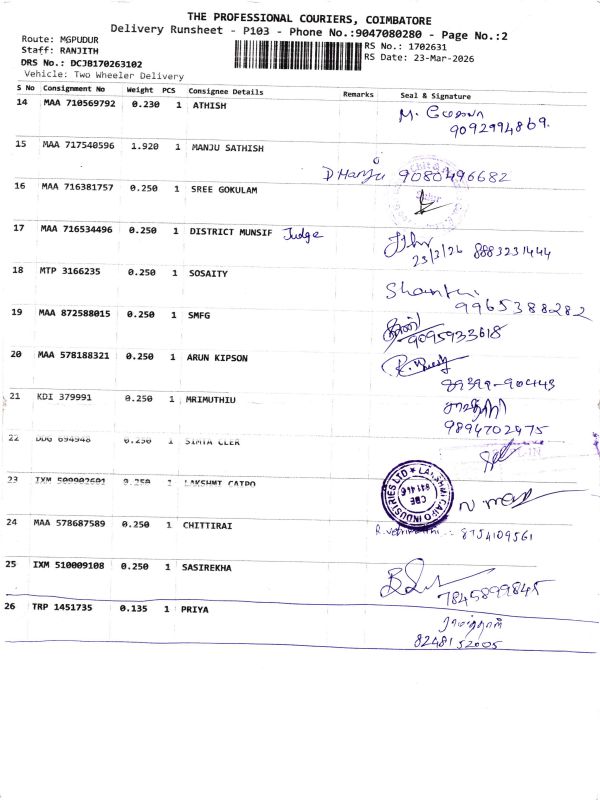 THE PROFESSIONAL COURIERS, COIMBATORE
Delivery Runsheet - P103 - Phone No.:9047080280 - Page No.:2
Route: MGPUDUR
Staff: RANJITH
DRS No.: DCJB170263102
Vehicle: Two Wheeler Delivery
RS No.: 1702631
RS Date: 23-Mar-2026
S No Consignment No Weight PCS Consignee Details Remarks Seal & Signature
14 MAA 710569792 0.230 1 ATHISH
9092994869.
15 MAA 717540596 1.920 1 MANJU SATHISH
D Manju 9080496682
16 MAA 716381757 0.250 1 SREE GOKULAM
17 MAA 716534496 0.250 1 DISTRICT MUNSIF Judge
23/3/26 8883231444
18 MTP 3166235 0.250 1 SOSAITY
Shanthi
9965388282
19 MAA 872588015 0.250 1 SMFG
9095933618
20 MAA 578188321 0.250 1 ARUN KIPSON
89399-90443
21 KDI 379991 0.250 1 MRIMUTHIU
9894702475
22 DDG 694948 0.250 1 SIMTA CLER
23 IXM 509002601 0.250 1 LAKSHMI CAIPO
LAKSHMI CAIPO INDUSTRIES LTD
CBE
641 416
24 MAA 578687589 0.250 1 CHITTIRAI
8754109561
25 IXM 510009108 0.250 1 SASIREKHA
7845899845
26 TRP 1451735 0.135 1 PRIYA
8248152005